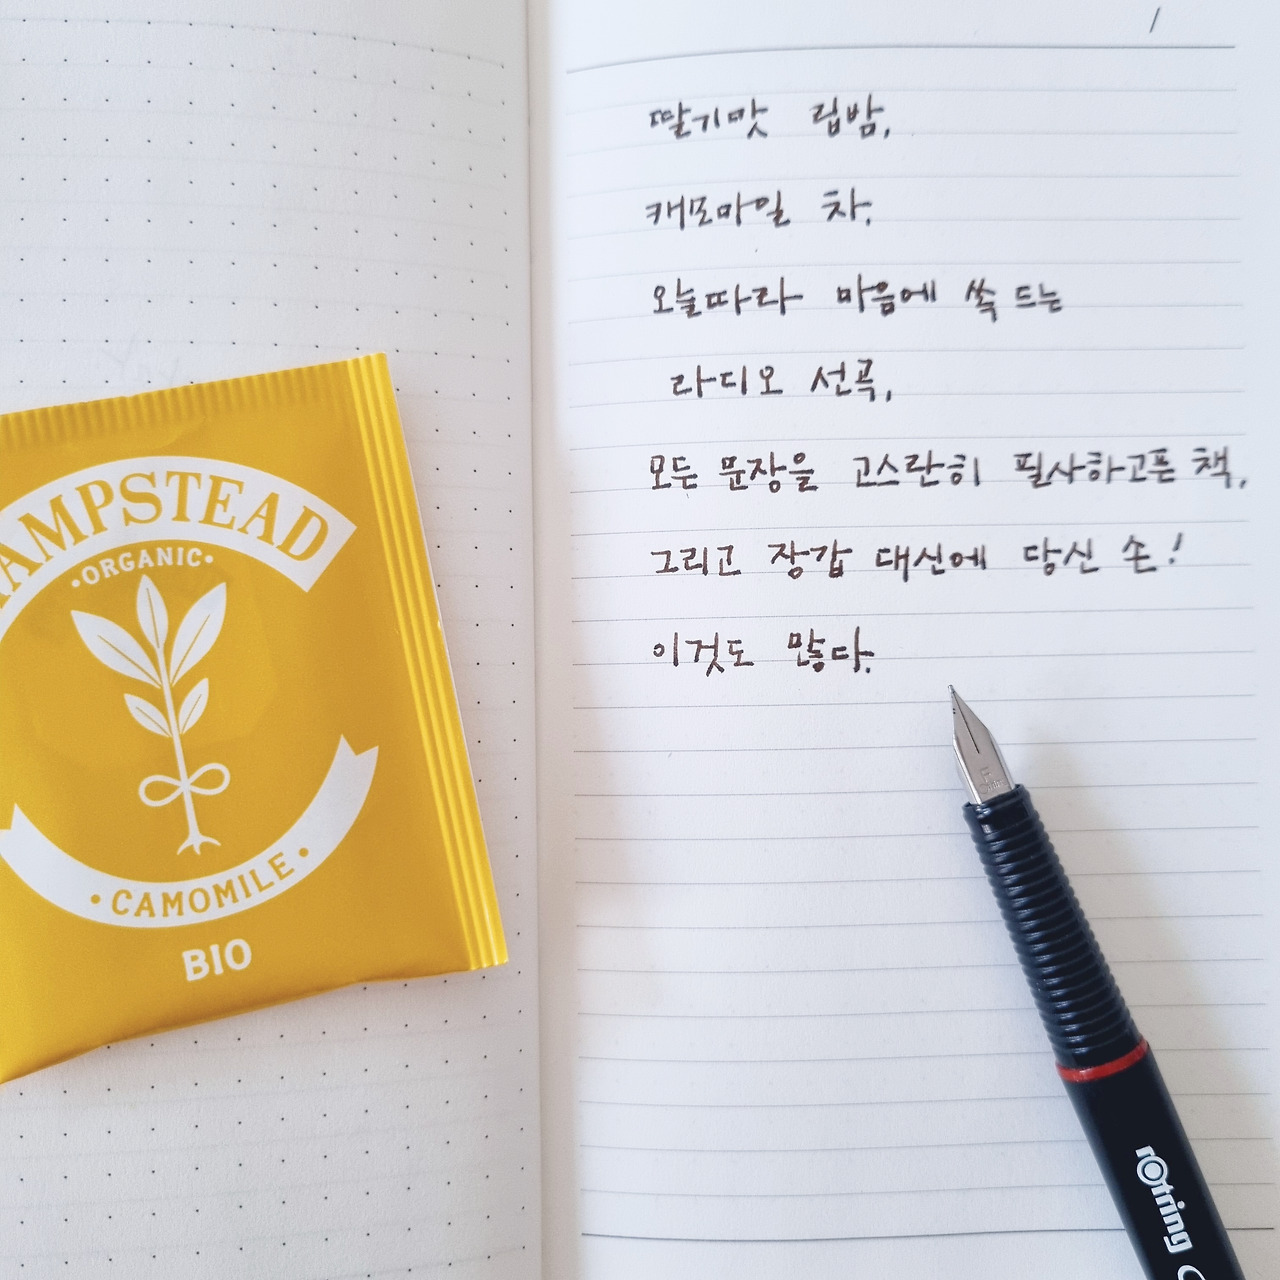 AMPSTEAD
•ORGANIC•
•CAMOMILE•
BIO
/
딸기맛 립밤,
캐모마일 차.
오늘따라 마음에 쏙 드는
라디오 선곡,
모든 문장을 고스란히 필사하고픈 책,
그리고 장갑 대신에 당신 손!
이것도 많다.
F
rOtring